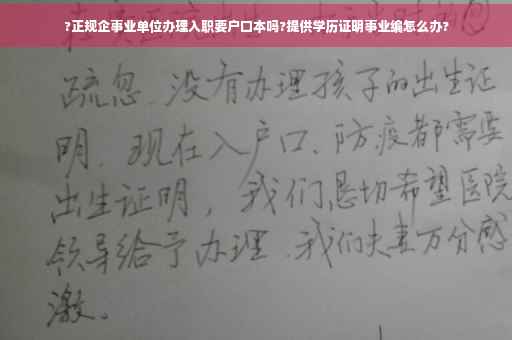 ?正规企事业单位办理入职要户口本吗?提供学历证明事业编怎么办?
疏忽、没有办理孩子的出生证
明、现在入户口、防疫都需要
出生证明，我们恳切希望医院
领导给予办理、我们夫妻万分感
激。